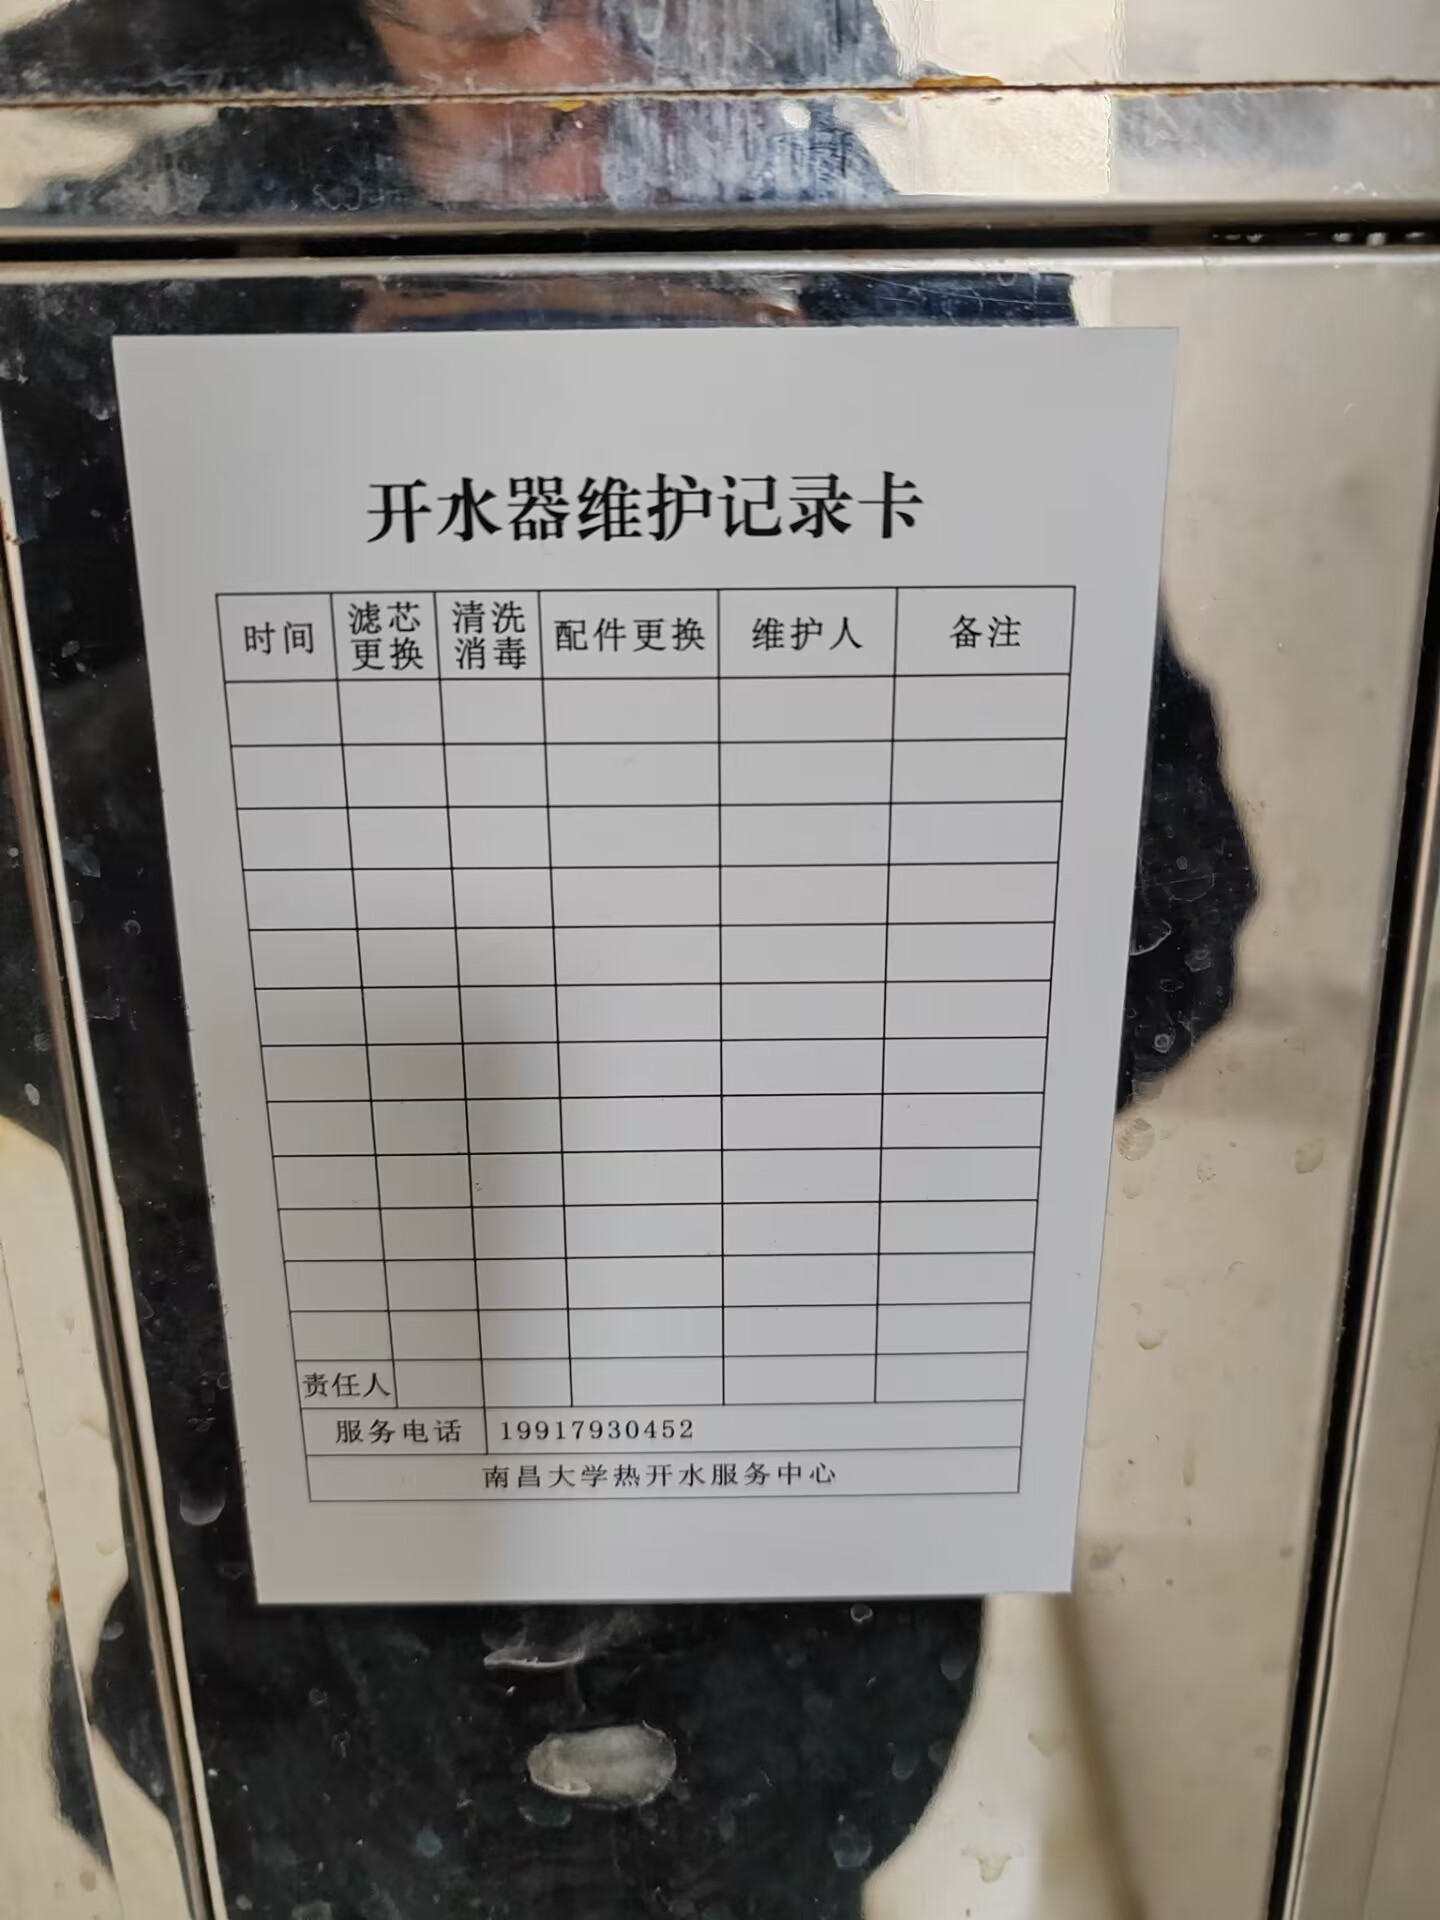 开水器维护记录卡
时间 滤芯更换 清洗消毒 配件更换 维护人 备注
责任人
服务电话 19917930452
南昌大学热开水服务中心